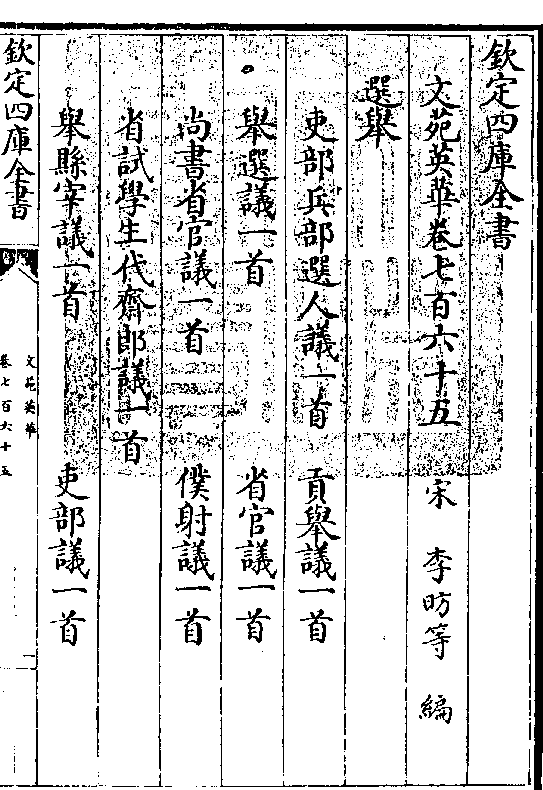 欽定四庫全書
文苑英華卷七百六十五
宋 李昉等 編
選舉
吏部兵部選人議一首 貢舉議一首
舉選議一首 省官議一首
尚書省官議一首 僕射議一首
省試學生代齋郎議一首
舉縣宰議一首 吏部議一首
欽定四庫全書
文苑英華
卷七百六十五
一